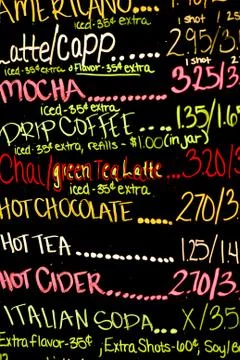 AMERICANO....
iced-35¢ extra 1 shot 2 s
Latte/Capp... 2.95/3.
iced-35¢ extra flavor-35¢ extra 1 shot 2
MOCHA....... 3.25/3.
iced-35¢ extra
DRIP COFFEE..... 1.35/1.6
iced-35¢ extra, refills - $1.00 (in jar)
Chai/green Tea Latte... 3.20/3
iced-35¢ extra
HOT CHOCOLATE...... 2.70/3.
HOT TEA...... 1.25/1.4
HOT CIDER....... 2.70/3.
ITALIAN SODA... X/3.5
Extra flavor-35¢ ; Extra Shots-60¢, Soy/